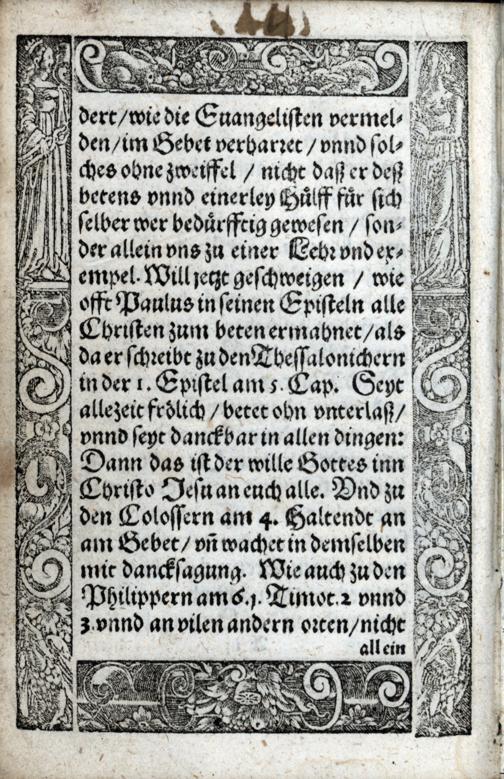 dert/wie die Euangelisten vermel-
den/im Gebet verharret/vnnd sol-
ches ohne zweiffel / nicht daß er deß
betens vnnd einerley Hülff für sich
selber wer bedürfftig gewesen / son-
der allein vns zu einer Lehr vnd ex-
empel. Will jetzt geschweigen / wie
offt Paulus in seinen Episteln alle
Christen zum beten ermahnet/als
da er schreibt zu den Thessalonichern
in der 1. Epistel am 5. Cap. Seyt
allezeit frölich/betet ohn vnterlaß/
vnnd seyt danckbar in allen dingen:
Dann das ist der wille Gottes inn
Christo Jesu an euch alle. Vnd zu
den Colossern am 4. Haltendt an
am Gebet/vñ wachet in demselben
mit dancksagung. Wie auch zu den
Philippern am 6.1. Timot. 2 vnnd
3.vnnd an vilen andern orten/nicht
allein